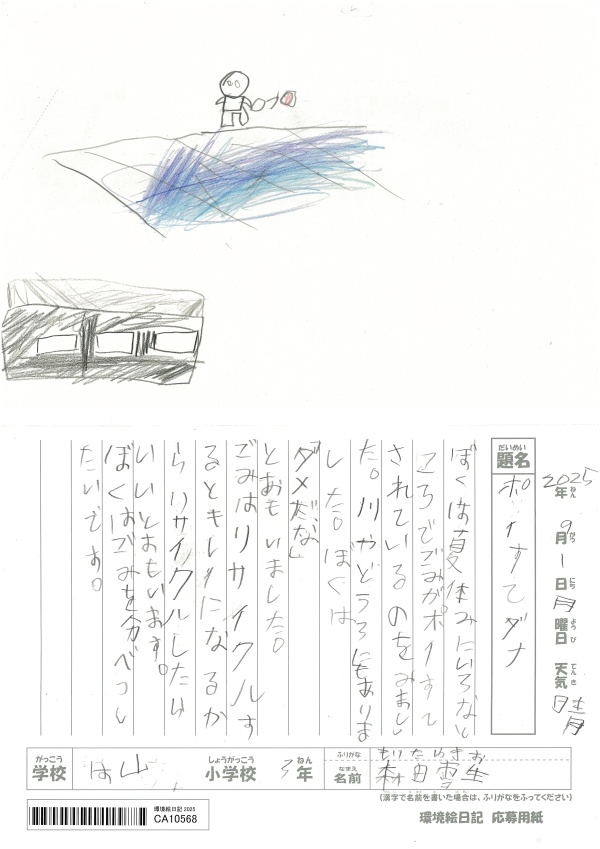 2025年 9月 1日 月曜日 天気 晴
ねん がつ にち ようび てんき
だいめい
題名 ポイすてダナ
ぼくは夏休みにいろなと
ころでごみがポイすて
されているのをみまし
た。川やどうろにもありま
した。ぼくは
「ダメだな」
とおもいました。
ごみはリサイクルす
るときれいになるか
らリサイクルしたら
いいとおもいます。
ぼくはごみを分べつし
たいです。
がっこう しょうがっこう ねん ふりがな もりたゆきお
学校 は山 小学校 3年 なまえ 名前 森田雪生
(漢字で名前を書いた場合は、ふりがなをふってください)
環境絵日記 2025
CA10568
環境絵日記 応募用紙